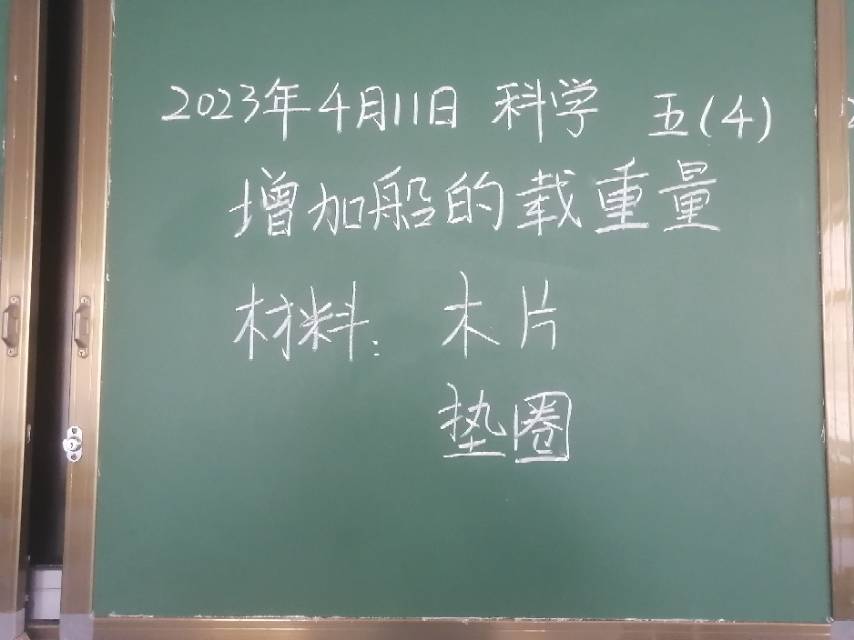 2023年4月11日 科学 五(4)
增加船的载重量
材料: 木片
垫圈